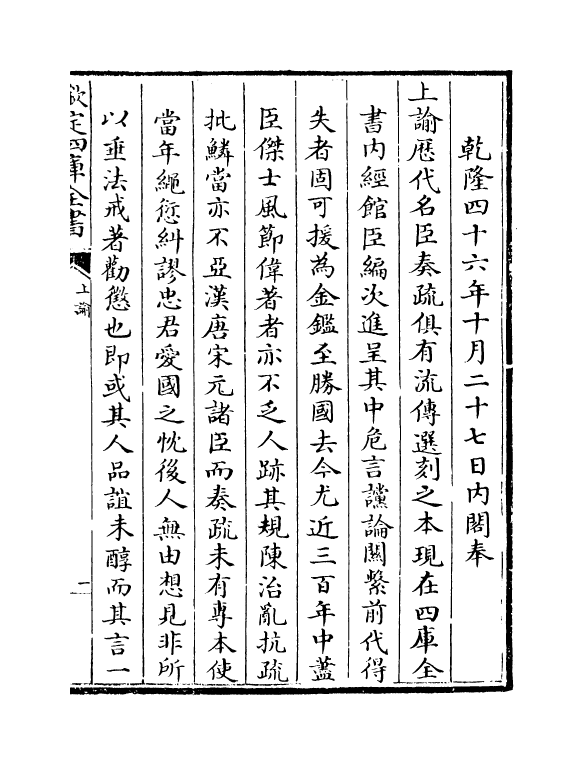 乾隆四十六年十月二十七日内閣奉
上諭歴代名臣奏疏俱有流傳選刻之本現在四庫全
書内經館臣編次進呈其中危言讜論關繫前代得
失者固可援為金鑑至勝國去今尤近三百年中藎
臣傑士風節偉著者亦不乏人跡其規陳治亂抗疏
批鱗當亦不亞漢唐宋元諸臣而奏疏未有專本使
當年繩愆糾謬忠君愛國之忱後人無由想見非所
以垂法戒著勸懲也即或其人品誼未醇而其言一
欽定四庫全書
上諭
一